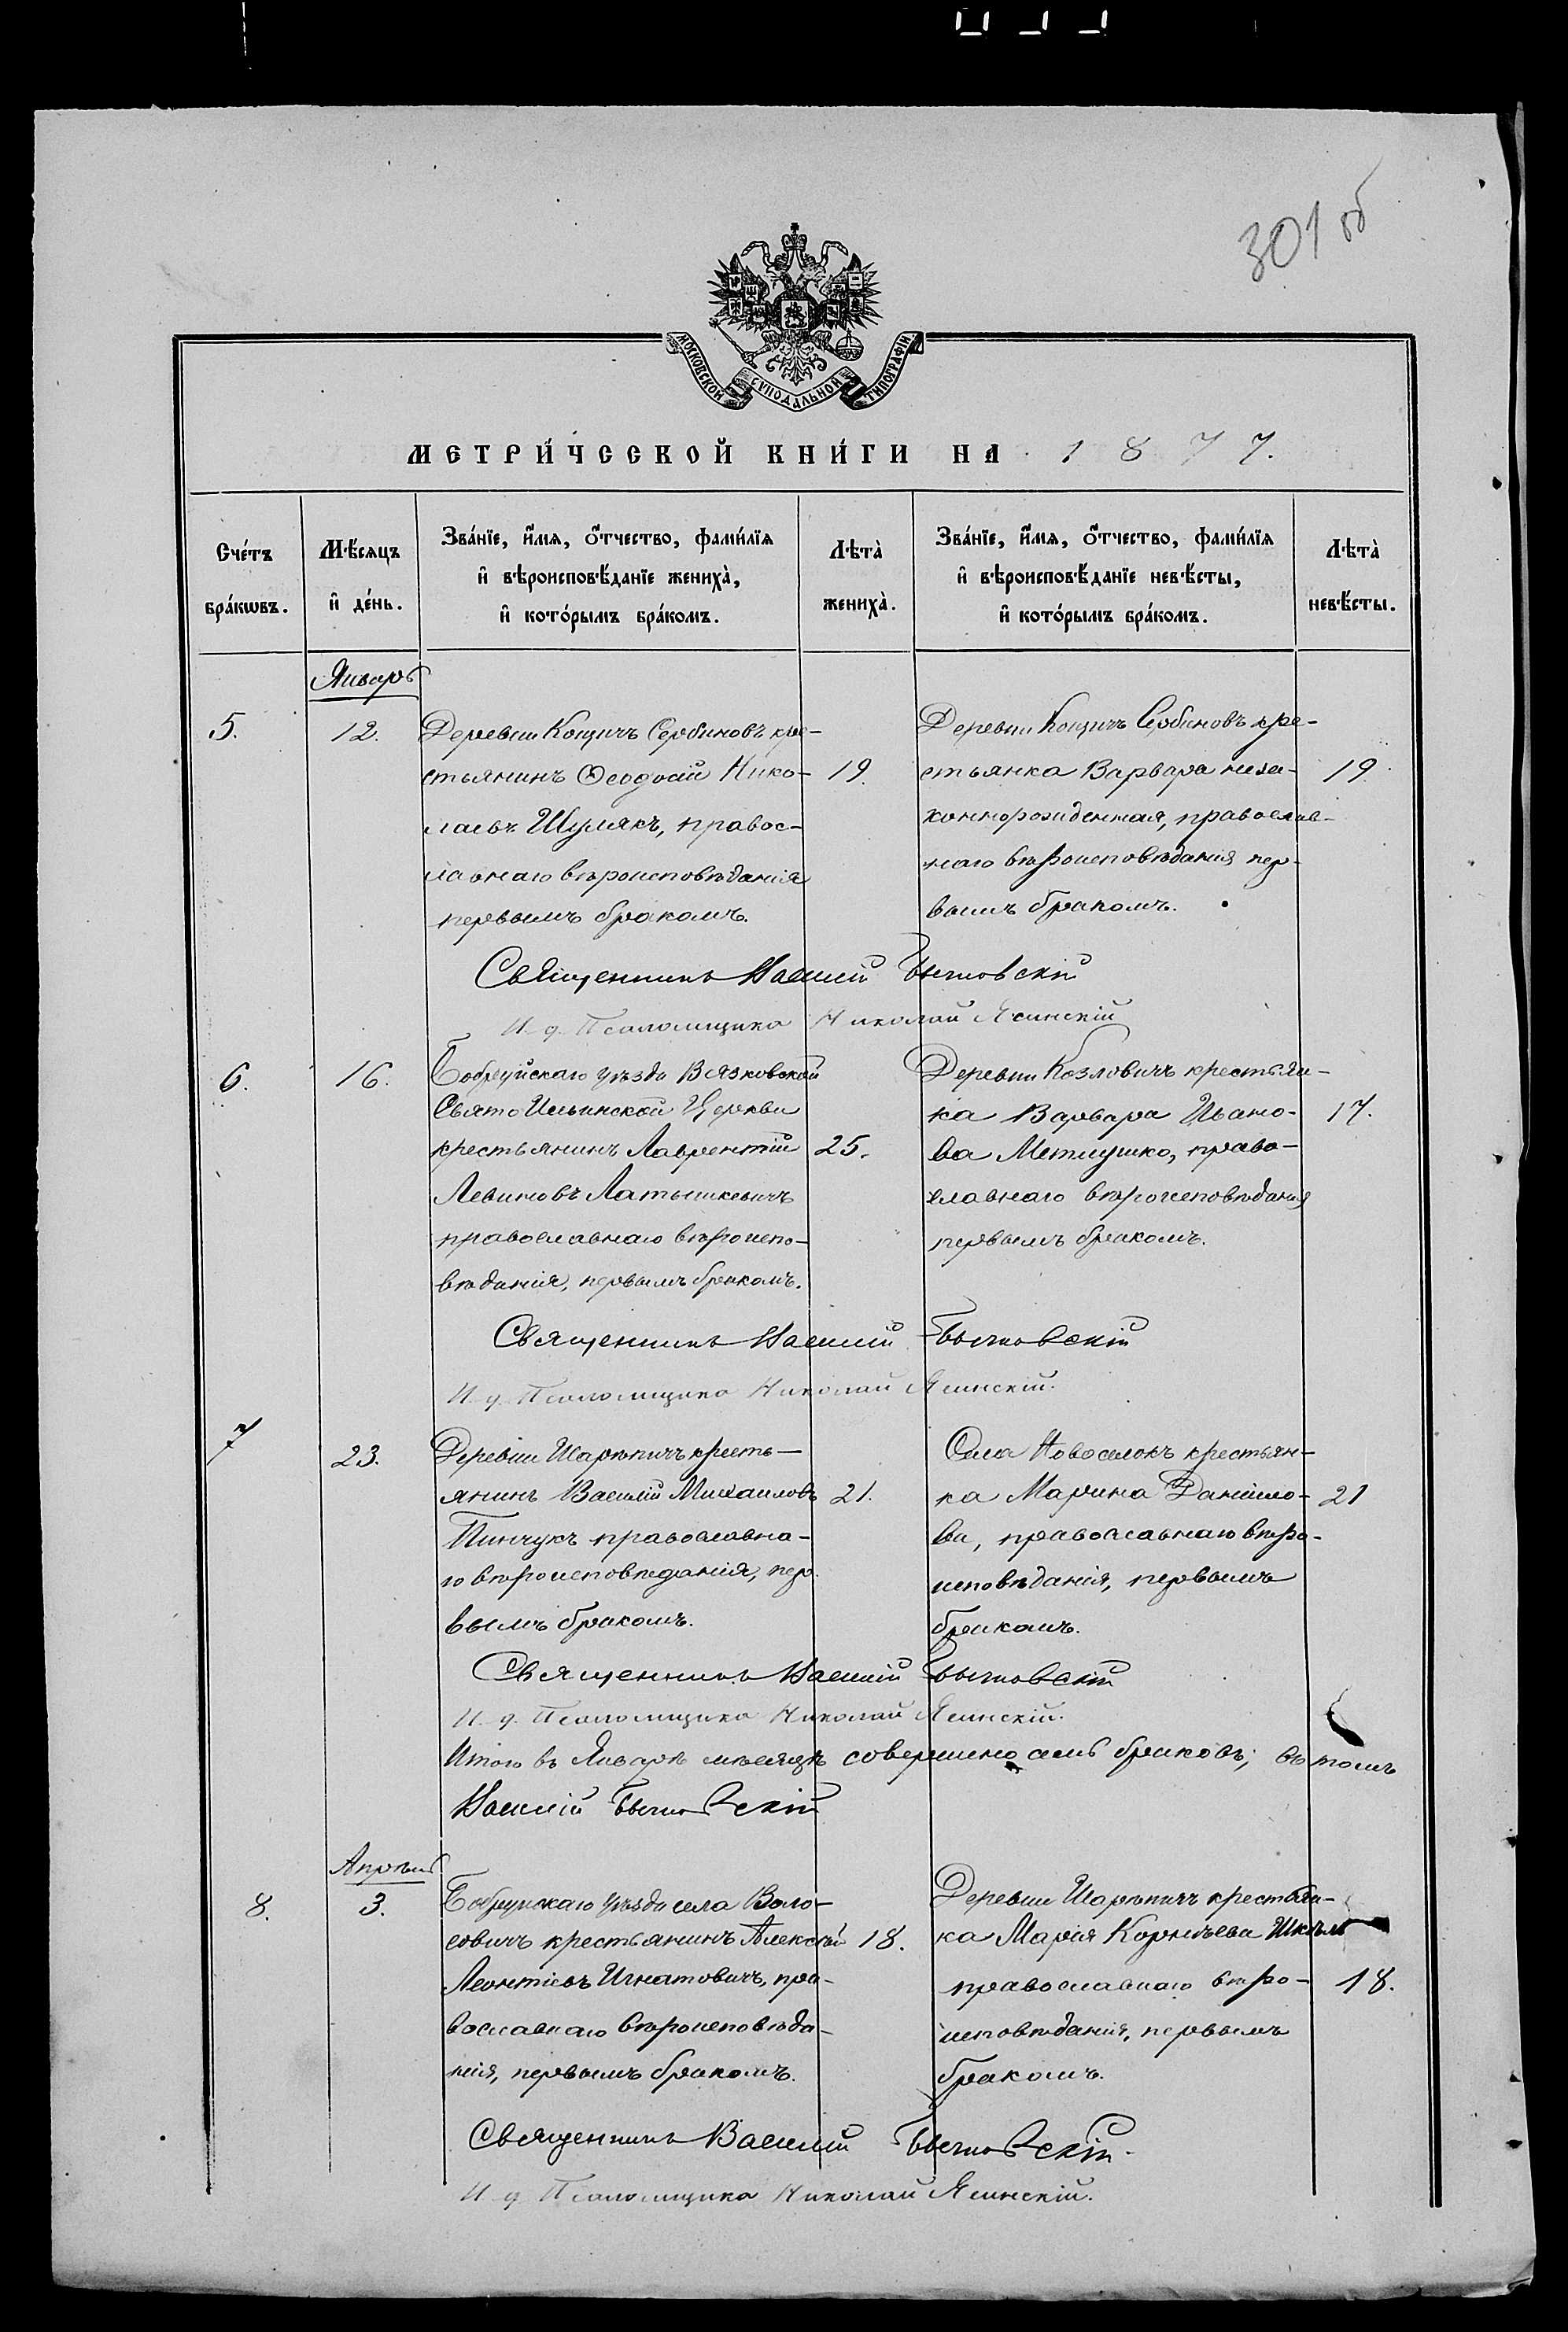 301 об
МОСКОВСКОЙ СѴНОДАЛЬНОЙ ТИПОГРАФІИ
МЕТРИ́ЧЕСКОЙ КНИ́ГИ НА 1877.
Сче́тъ бра́кѡвъ.
Мѣ́сяцъ и де́нь.
Зва́нїе, и҆́мѧ, ѻ҆́тчество, фами́лїѧ
и҆ вѣроисповѣ́данїе жениха̀,
и҆ кото́рымъ бра́комъ.
Лѣта̀ жениха̀.
Зва́нїе, и҆́мѧ, ѻ҆́тчество, фами́лїѧ
и҆ вѣроисповѣ́данїе невѣ́сты,
и҆ кото́рымъ бра́комъ.
Лѣта̀ невѣ́сты.
Январь
5.
12.
Деревни Кощичъ Сербиновъ кре-
стьянинъ Ѳеодосій Нико-
лаевъ Шулякъ, правос-
лавнаго вѣроисповѣданія
первымъ бракомъ.
19.
Деревни Кощичъ Сербиновъ кре-
стьянка Варвара неза-
коннорожденная, православ-
наго вѣроисповѣданія пер-
вымъ бракомъ.
19.
Священникъ Василій Бычковскій
И. д. Псаломщика Николай Ясинскій
6.
16.
Бобруйскаго уѣзда Вязковской
Свято Ильинской Церкви
крестьянинъ Лаврентій
Левиновъ Латышкевичъ
православнаго вѣроиспо-
вѣданія, первымъ бракомъ.
25.
Деревни Козловичъ крестьян-
ка Варвара Ивано-
ва Метлушко, право-
славнаго вѣроисповѣданія
первымъ бракомъ.
17.
Священникъ Василій Бычковскій
И. д. Псаломщика Николай Ясинскій.
7
23.
Деревни Шарѣпичъ кресть-
янинъ Василій Михаиловъ
Пинчукъ православна-
го вѣроисповѣданія, пер-
вымъ бракомъ.
21.
Села Новоселокъ крестьян-
ка Марина Даніило-
ва, православнаго вѣро-
исповѣданія, первымъ
бракомъ.
21
Священникъ Василій Бычковскій
И. д. Псаломщика Николай Ясинскій.
Итого въ Январѣ мѣсяцѣ совершено семь браковъ; въ томъ
Василій Бычковскій
Апрѣль
8.
3.
Бобруйскаго уѣзда села Воло-
совичъ крестьянинъ Алексѣй
Леонтіевъ Игнатовичъ, пра-
вославнаго вѣроисповѣда-
нія, первымъ бракомъ.
18.
Деревни Шарѣпичъ крестьян-
ка Марія Корнѣева
православнаго вѣро-
исповѣданія, первымъ
бракомъ.
18.
Священникъ Василій Бычковскій.
И. д. Псаломщика Николай Ясинскій.